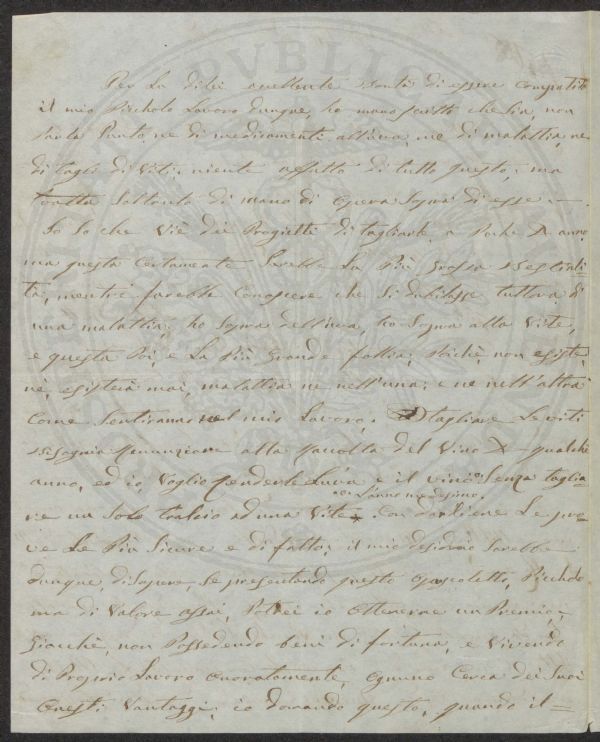 Per La di Lei eccellente bontà di essere compatito
il mio Picholo Lavoro dunque, ho manoscritto che sia, non
Parla Punto, ne di medicamenti all'uva, ne di malattia, ne
di tagli di Viti; niente affatto di tutto questo, ma
tratta Soltanto di mano di opera Sopra di esse. —
Io So che Vi è dei Progietti di tagliarle, a Pochi X anno
ma questa Certamente Sarebbe La Più grossa Bestiali-
tà, mentre farebbe Conoscere che Si dubitasse tuttora di
una malattia, ho Sopra dell'uva, ho Sopra alla Vite,
e questa Poi, e La Più grande follia; Poichè, non esiste,
nè, esisterà mai, malattia ne nell'una; e ne nell'altra
Come Sentiranno nel mio Lavoro. tagliare Le viti
Bisognia Renunziare alla Raccolta del Vino X qualche
anno, ed io Voglio Pendente L'uva e il vino Senza taglia-
L'anno medesimo.
re un Solo tralcio ad una Vite. Con darliene Le pro-
ve Le Più Sicure e di fatto; il mio desiderio Sarebbe
dunque, di Sapere, Se presentando questo Opuscoletto, Picholo
ma di Valore assai, Potrei io Ottenerne un Premio,
Giacchè, non Possedendo beni di fortuna, e Vivendo
di Proprio Lavoro Onoratamente, Ognuno Cerca dei Suoi
Onesti Vantaggi; io domando questo, quando il
PVBLIC